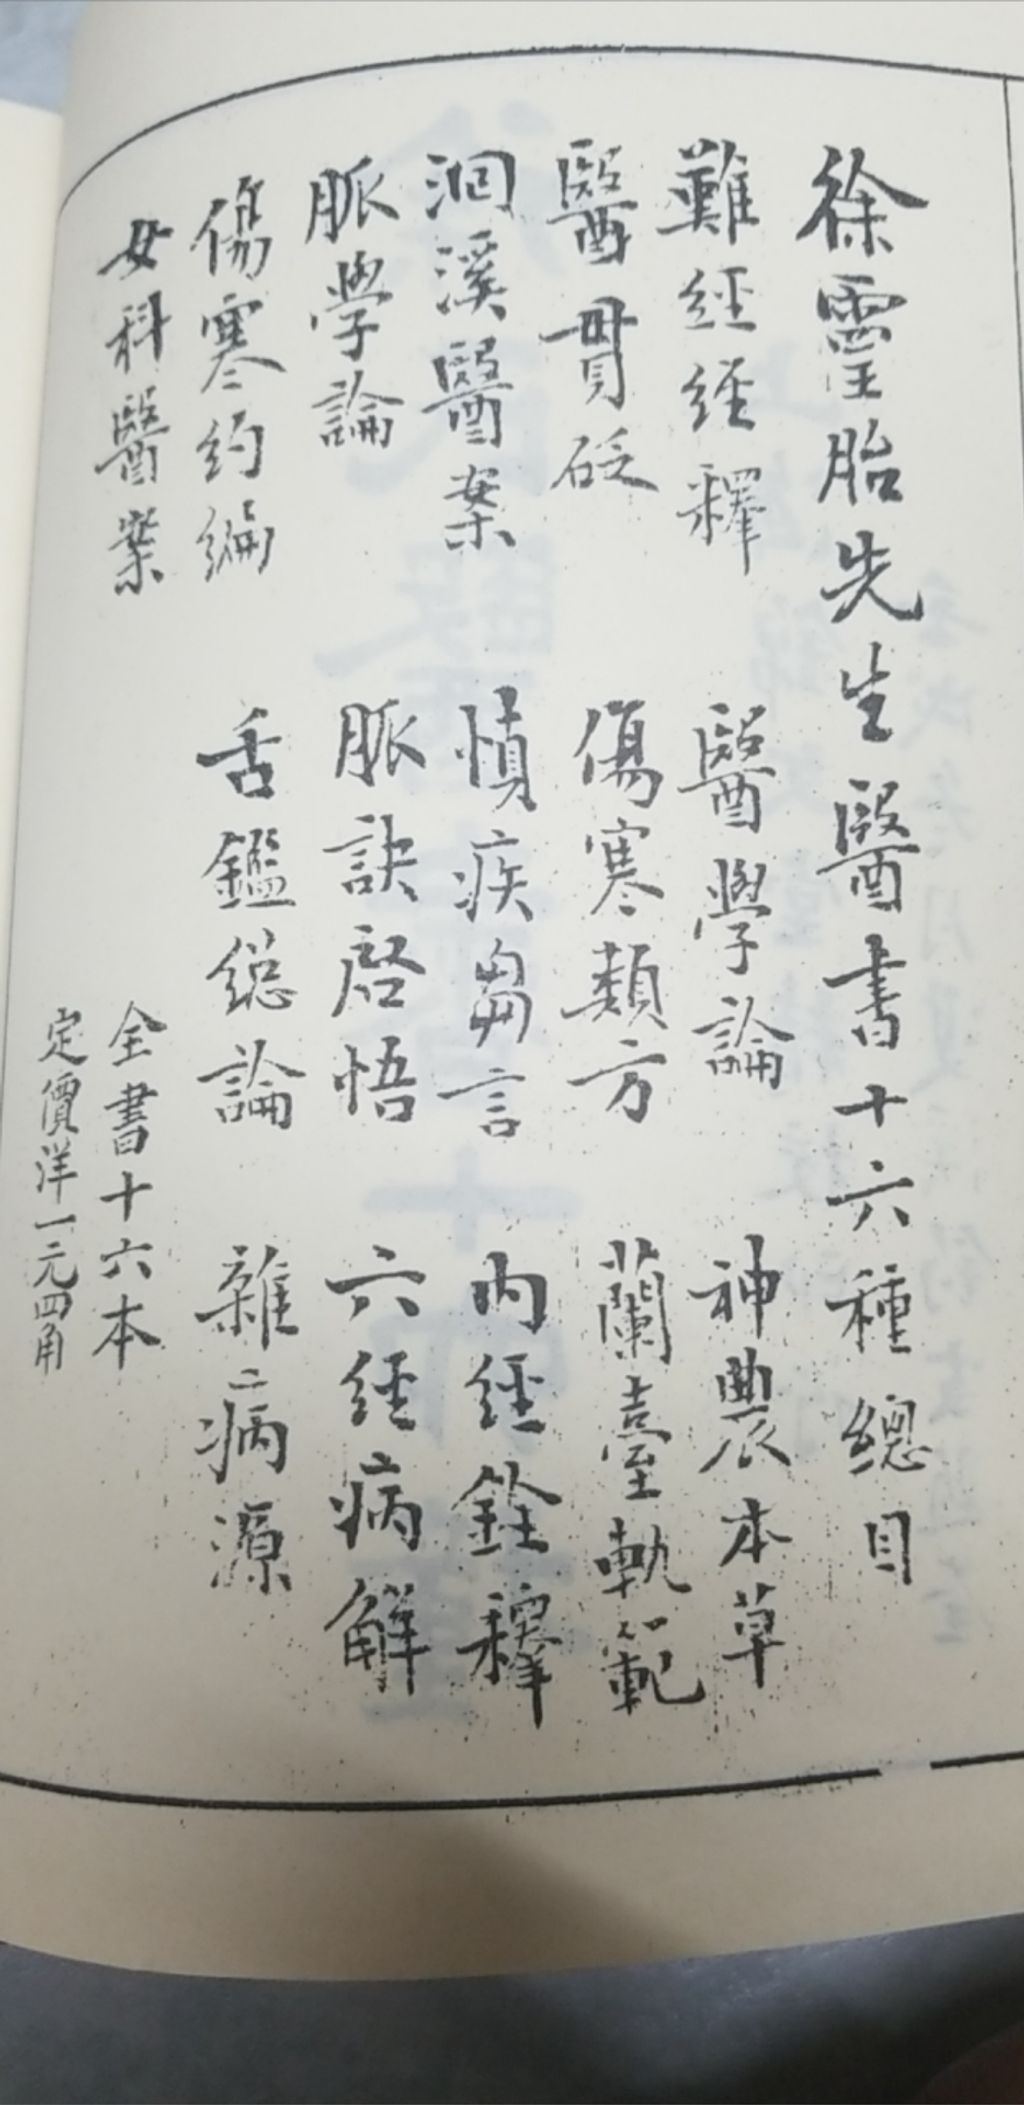 徐靈胎先生醫書十六種總目
難經經釋 醫學論 神農本草
醫貫砭 傷寒類方 蘭臺軌範
洄溪醫案 慎疾芻言 内經銓釋
脈學論 脈訣啓悟 六經病解
傷寒約編 舌鑑總論 雜病源
女科醫案
全書十六本
定價洋一元四角